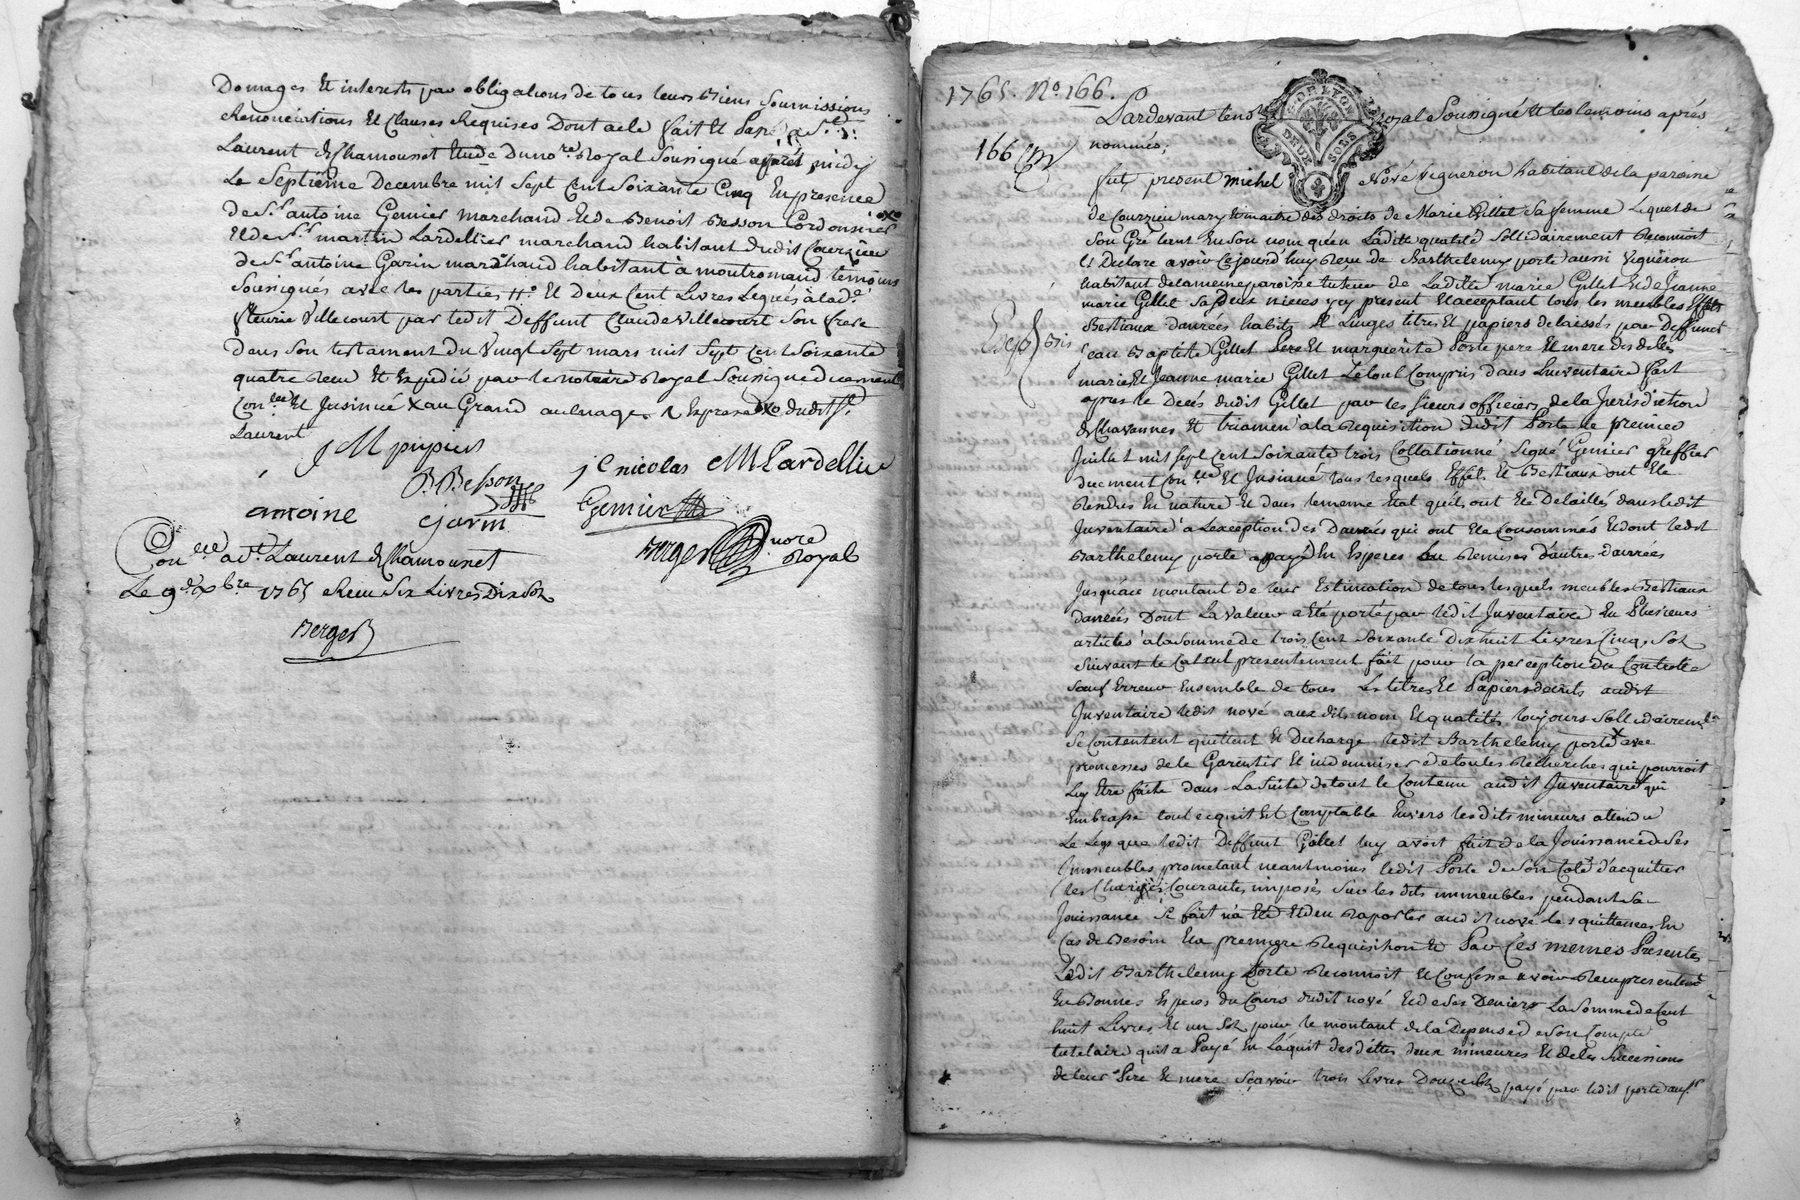 Domages Et interests par obligations de tous leurs Biens Soumissions
Renonciations Et Clauses Requises Dont acte fait Et Passé a St.
Laurent de Chamousset Etude Du nore. Royal Soussigné après midy
Le Septième Decembre mil Sept Cent Soixante Cinq En presence
de Sr. antoine Genier marchand Et de Benoit Besson Cordonnier
Et de Sr. martin Lardellier marchand habitant dudit Courzieu
de Sr. antoine Garin marchand habitant à montromand témoins
Soussignés avec les parties Et Deux Cent Livres Legués à lade.
fleurie Villecourt par ledit Deffunt Claude Villecourt Son frere
dans Son testament du Vingt Sept mars mil Sept Cent Soixante
quatre Recu Et Expedié par le notaire Royal Soussigné duement
Conllé Et Insinué X au Grand dudit St.
Laurent
J M pupier
B. Besson jC nicolas M Lardellie
antoine garin Genier
Berger nore
Royal
Conllé a St. Laurent de Chamousset
Le 9e. Xbre 1765 Recu Six Livres Dix Sols
Berger
1765. No. 166.
Pardevant le no Royal Soussigné Et les temoins après
166
nommés;
GOR LYON
DEUX SOLS
fut present michel Nové vigneron habitant de la paroisse
de Courzieu mary Et maitre des droits de Marie Gillet Sa femme Lequel de
Son Gré tant En Son nom qu'en Ladite qualité Sollidairement Reconnoit
Et Declare avoir Cejourd'huy Recu de Barthelemy porte aussi Vigneron
habitant de la meme paroisse tuteur de Ladite marie Gillet Et de Jeanne
marie Gillet Ses Deux nieces icy present Et acceptant tous les meubles Effets
Bestiaux danrées habits Et Linges titres Et papiers delaissés par Deffunct
Exp
Jean Baptiste Gillet Pere Et marguerite Porte pere Et mere desdites
marie Et Jeanne marie Gillet Le tout Compris dans L'inventaire fait
après le Decés dudit Gillet par les Sieurs officiers de la Jurisdiction
de Chavannes Et triamen à la Requisition dudit Porte Le premier
Juillet mil Sept Cent Soixante trois Collationné Signé Genier Greffier
duement Conllé Et Insinué tous lesquels Effets Et Bestiaux ont Eté
Rendus En nature Et dans le meme Etat qu'ils ont Eté Detaillés dans ledit
Inventaire à L'exception des Danrées qui ont Eté Consommés Et dont ledit
Barthelemy porte a payé En Especes ou Remises d'autres danrées
Jusqu'au montant de leur Estimation de tous lesquels meubles Bestiaux
danrées Dont La valeur a Eté porté par ledit Inventaire En Plusieurs
articles à la Somme de trois Cent Soixante Dix huit Livres Cinq Sols
Suivant le Calcul presentement fait pour la perception du Controlle
Sauf Erreur Ensemble de tous Les titres Et Papiers decrits audit
Inventaire ledit nové aux dits nom Et qualités toujours Sollidairement
Se Contentent quittent Et Decharge ledit Barthelemy porte X avec
promesses de le Garentir Et indemniser de toutes Recherches qui pourroit
Luy Etre faite dans La Suite de tout le Contenu audit Inventaire qui
Embrasse tout acquit Et Comptable Envers lesdits mineurs attendu
Le Legs que ledit Deffunt Gillet luy avoit fait de la Jouissance de Ses
Immeubles promettant neantmoins ledit Porte de Son Coté d'acquitter
Les Charges Courantes imposés Sur les dits immeubles pendant Sa
Jouissance Si fait n'a Eté Et d'en Raporter audit nové les quittances En
Cas de Besoin Et a premiere Requisition Et Par Ces memes Presentes
Ledit Barthelemy Porte Reconnoit Et Confesse avoir Recu presentement
En Bonnes Especes du Cours dudit nové Et de Ses Deniers La Somme de Cent
huit Livres Et un Sol pour le montant de la Depense de Son Compte
tutelaire qu'il a Payé En L'aquit des dettes deux mineures Et de les Successions
de leur Pere Et mere Scavoir trois Livres Douze Sols payé par ledit porte aux